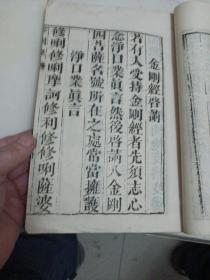 金剛經啓請
若有人受持金剛經者先須志心
念淨口業真言然後啓請八金剛
四菩薩名號所在之處常當擁護
淨口業真言
修唎修唎摩訶修利修修唎薩婆